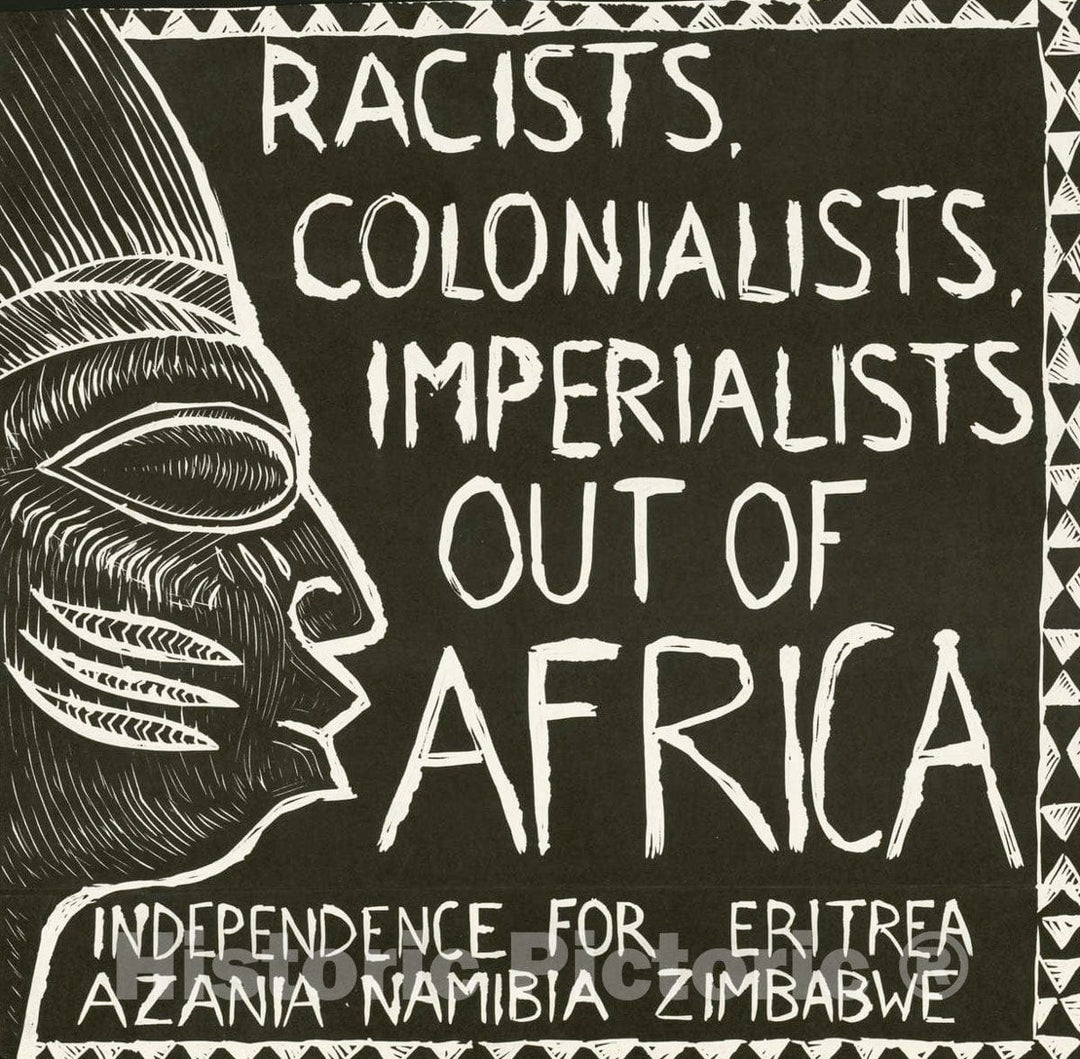 RACISTS,
COLONIALISTS,
IMPERIALISTS
OUT OF
AFRICA
INDEPENDENCE FOR ERITREA
Historic Pictoric ®
AZANIA NAMIBIA ZIMBABWE